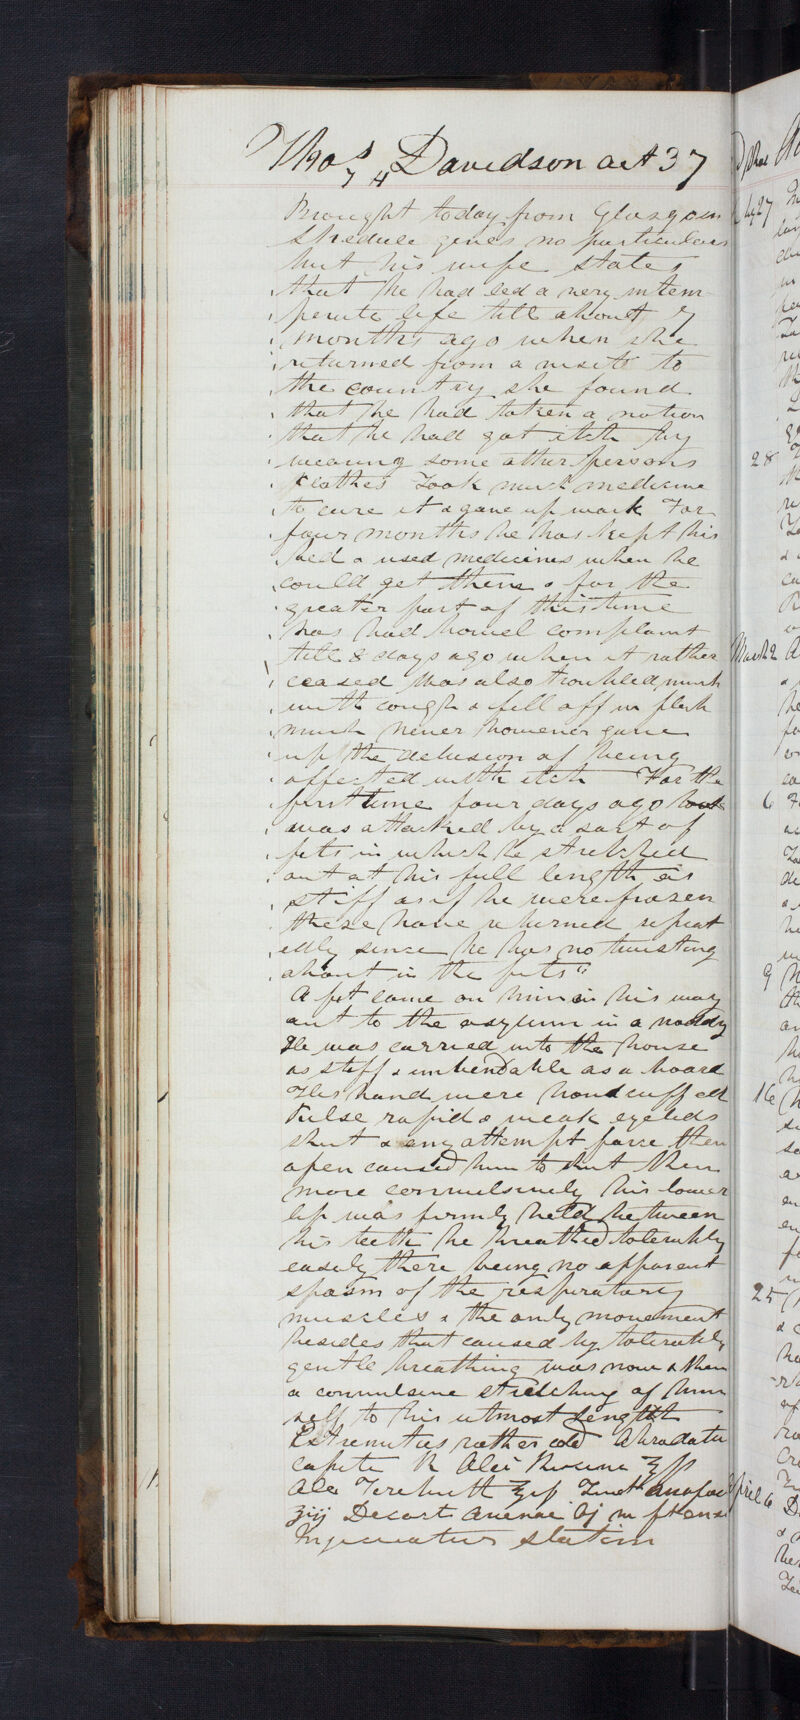 Thos Davidson aet 37
74
Brought today from Glasgow
Shedule gives no particulars
but his wife states
that he had led a very intem
perate life till about 7
months ago when she
returned from a visit to
the country she found
that he had taken a notion
that he had got itch by
wearing some other persons
clothes Took much medicine
to cure it & gave up work For
four months he has kept his
bed & used medicines when he
could get them & for the
greater part of this time
has had bowel complaint
till 8 days ago when it rather
ceased Was also troubled much
with cough & fell off in flesh
much Never however gave
up the delusion of being
affected with itch For the
first time four days ago
was attacked by a sort of
fits in which he stretched
out at his full length as
stiff as if he were frozen
these have returned repeat
edly since he has no twisting
about in the fits"
A fit came on him in his way
out to the asylum in a noddy
He was carried into the house
as stiff & unbendable as a board
His hand were handcuffed
Pulse rapid & weak eyelids
shut & any attempt force them
open caused him to shut them
more convulsively his lower
lip was firmly held between
his teeth he breathed tolerably
easily there being no apparent
spasm of the respiratory
muscles & the only movement
besides that caused by tolerably
gentle breathing was now & then
a convulsive stretching of him
self to his utmost length
Extremities rather cold Abradatur
caput R Olei Ricini ℥ss
Olei Terebinth ℥ss Tinct Assafoet
ʒiij Decoct Avenae ℔j m ft enema
Injiciatur statim
28
March 2
6
9
16
25
April 6